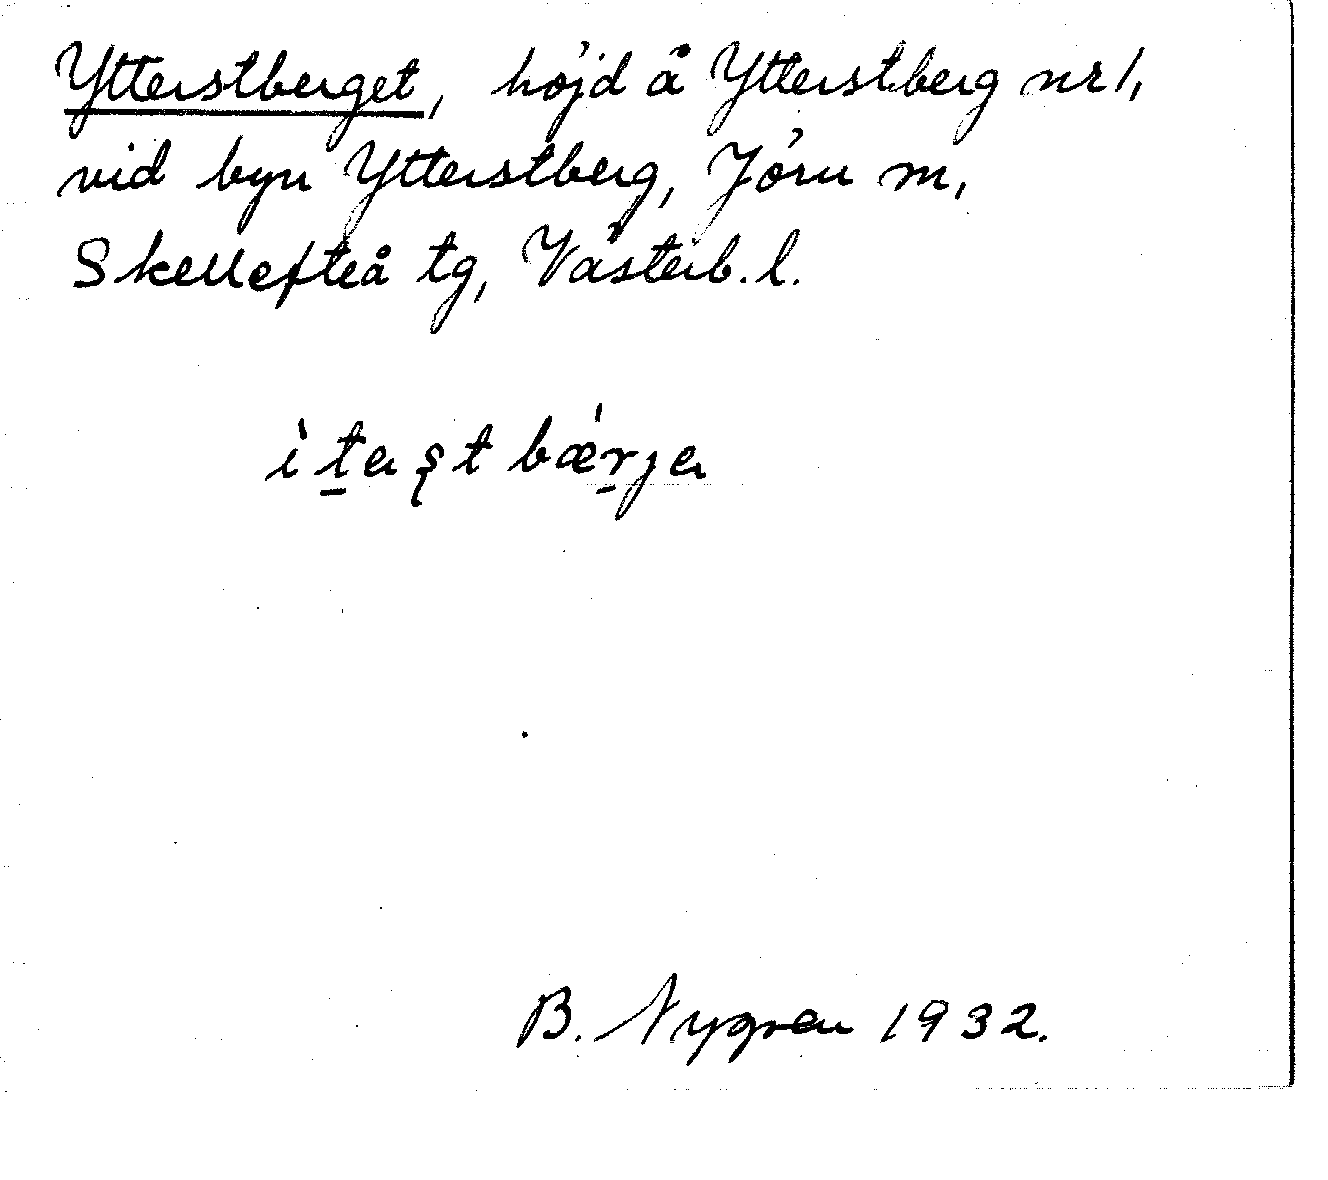 Ytterstberget, höjd å Ytterstberg nr 1,
vid byn Ytterstberg, Jörn m,
Skellefteå tg, Västerb. l.
ìt̲eşt bǽr̲jɐ
B. Nygren 1932.